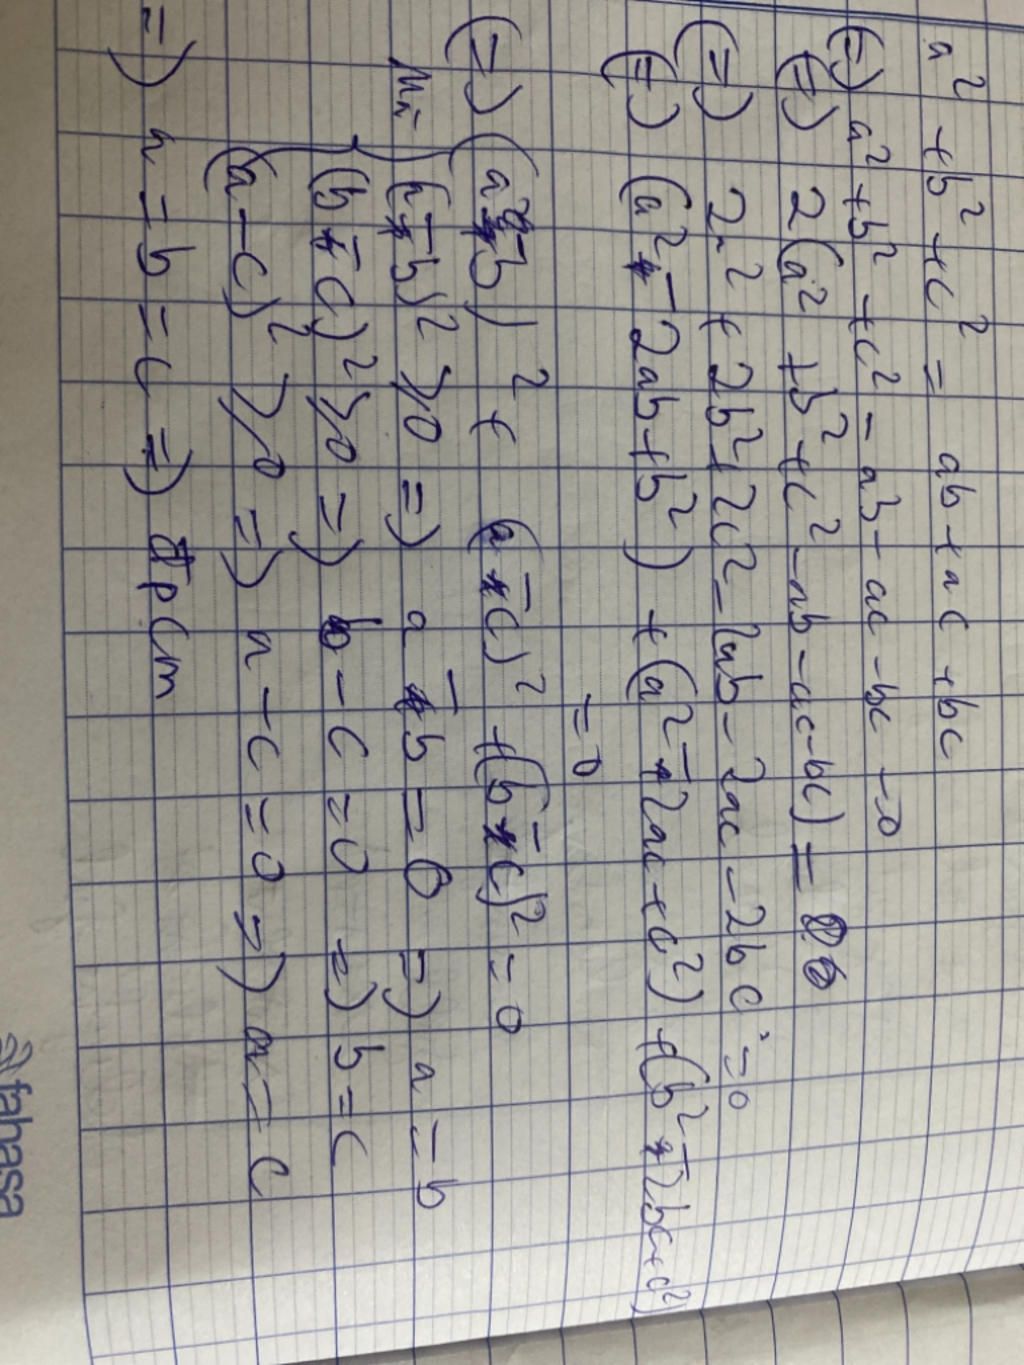 a² + b² + c² = ab + ac + bc
(=) a² + b² + c² - ab - ac - bc = 0
(=) 2(a² + b² + c² - ab - ac - bc) = 0
(=) 2a² + 2b² + 2c² - 2ab - 2ac - 2bc = 0
(=) (a² - 2ab + b²) + (a² - 2ac + c²) + (b² - 2bc + c²)
= 0
(=) (a - b)² + (a - c)² + (b - c)² = 0
Mà (a - b)² ≥ 0 =) a - b = 0 =) a = b
(b - c)² ≥ 0 =) b - c = 0 =) b = c
(a - c)² ≥ 0 =) a - c = 0 =) a = c
=) a = b = c =) đpcm
fahasa